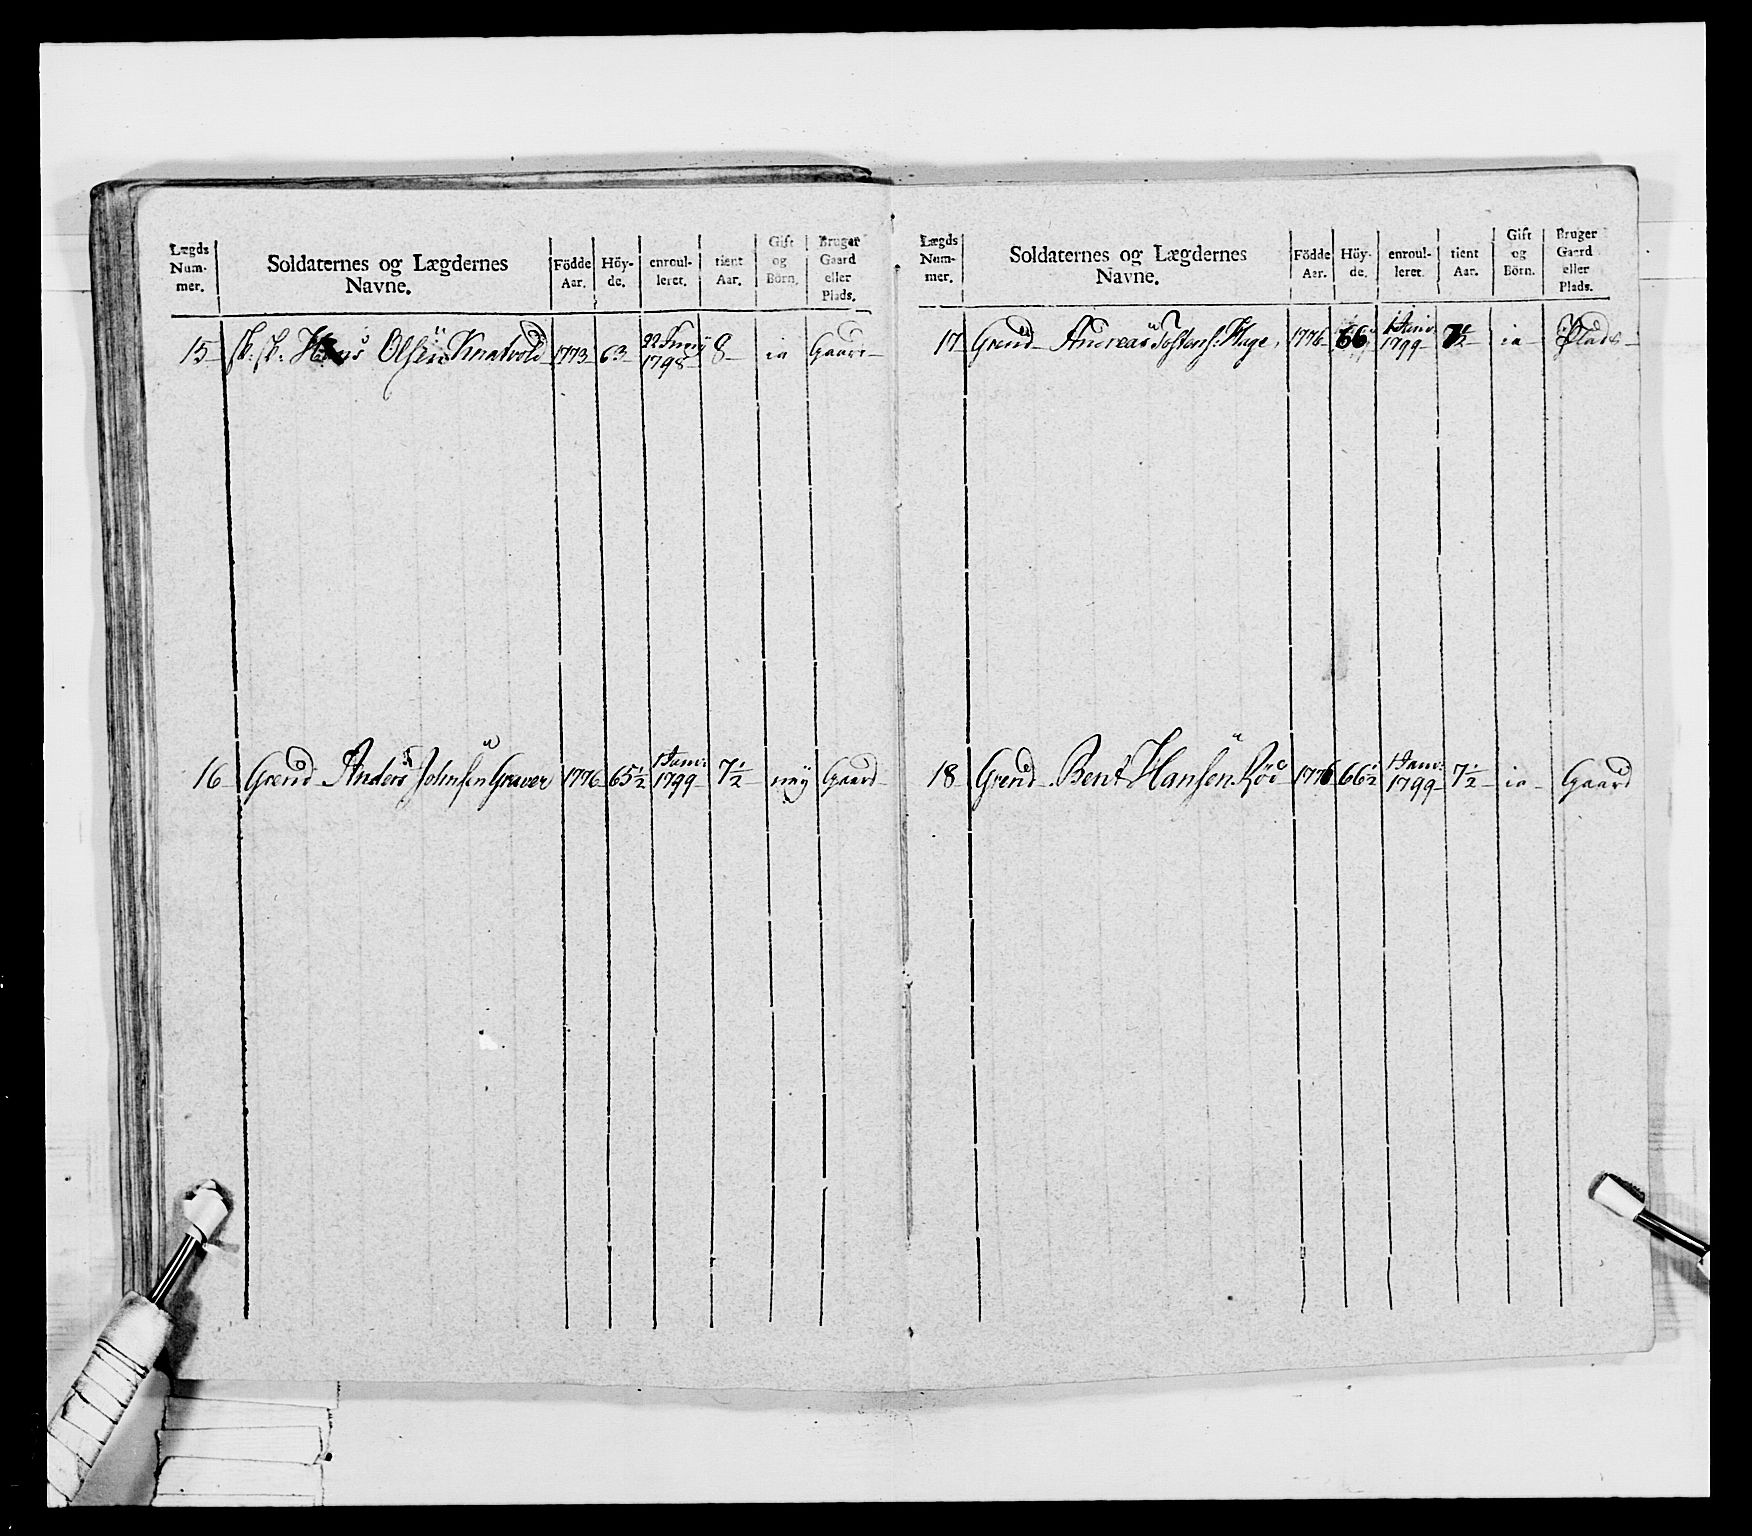 Lægds Num- mer. Soldaternes og Lægdernes Navne. Födde Aar. Höy- de. enroul- leret. tient Aar. Gift og Börn. Bruger Gaard eller Plads.
15 Hans Olsen Knatvold 1773 63 22 Junij 1798 8 ia Gaard
16 Grend Anders Johnsen Graver 1776 65½ 1 Janv: 1799 7½ nøy Gaard
Lægds Num- mer. Soldaternes og Lægdernes Navne. Födde Aar. Höy- de. enroul- leret. tient Aar. Gift og Börn. Bruger Gaard eller Plads.
17 Grend Andreas Hage 1776 66 1 Janv: 1799 7½ ia Plads
18 Grend Bent Hansen Röd 1776 66½ 1 Janv: 1799 7½ ia Gaard